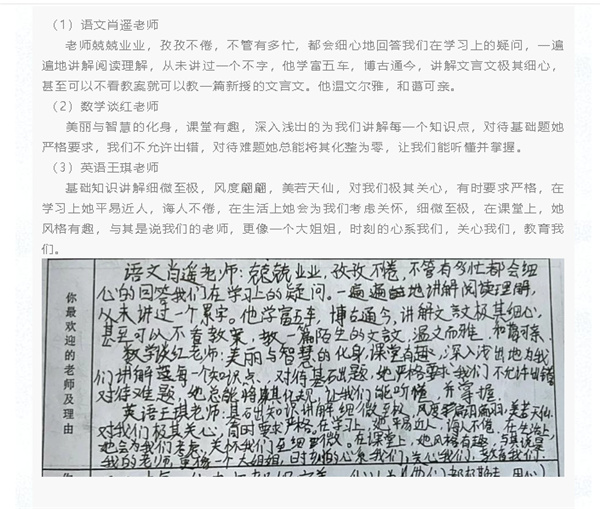 （1）语文肖遥老师
老师兢兢业业，孜孜不倦，不管有多忙，都会细心地回答我们在学习上的疑问，一遍
遍地讲解阅读理解，从未讲过一个不字，他学富五车，博古通今，讲解文言文极其细心，
甚至可以不看教案就可以教一篇新授的文言文。他温文尔雅，和蔼可亲。
（2）数学谈红老师
美丽与智慧的化身，课堂有趣，深入浅出的为我们讲解每一个知识点，对待基础题她
严格要求，我们不允许出错，对待难题她总能将其化整为零，让我们能听懂并掌握。
（3）英语王琪老师
基础知识讲解细微至极，风度翩翩，美若天仙，对我们极其关心，有时要求严格，在
学习上她平易近人，诲人不倦，在生活上她会为我们考虑关怀，细微至极，在课堂上，她
风格有趣，与其是说我们的老师，更像一个大姐姐，时刻的心系我们，关心我们，教育我
们。
你最欢迎的老师及理由
语文肖遥老师：兢兢业业，孜孜不倦，不管有多忙都会细
心的回答我们在学习上的疑问。一遍遍地讲解阅读理解，
从未讲过一个累字。他学富五车，博古通今，讲解文言文极其细心，
甚至可以不看教案，教一篇陌生的文言文，温文而雅，和蔼可亲。
数学谈红老师：美丽与智慧的化身，课堂有趣，深入浅出地为我
们讲解每一个知识点，对待基础题，她严格要求，我们不允许出错
对待难题，她总能将其化规，让我们能听懂，并掌握。
英语王琪老师：基础知识讲解细微至极，风度翩翩，美若天仙，
对我们极其关心，有时要求严格，在学习上，她平易近人，诲人不倦，在生活上，
她会为我们考虑，关怀我们至细微。在课堂上，她风格有趣，与其说是
我的老师，更像一个大姐姐，时刻的心系我们，关心我们，教育我们。